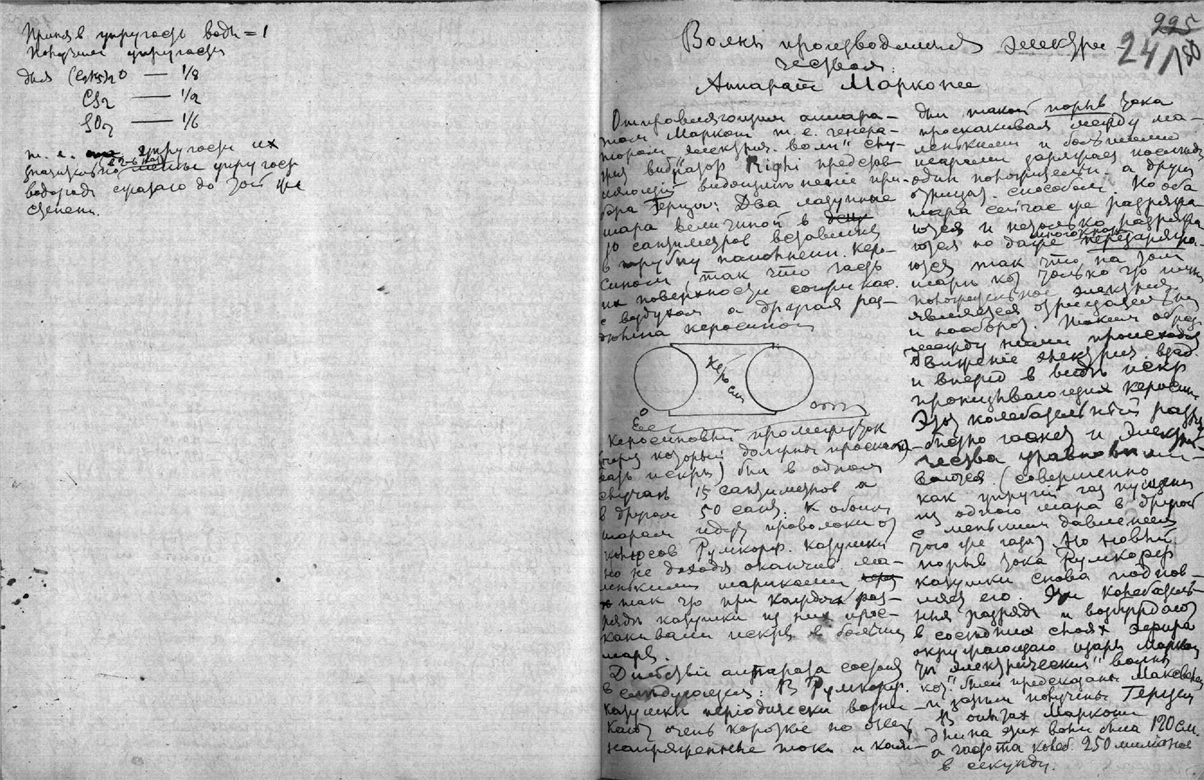 Приняв упругость воды = 1
Получим упругости
для (C2H5)2O — 1/8
CS2 — 1/2
SO2 — 1/6
т. е. упругости их
значительно меньше упругости
водорода сжатого до той же
степени.
225
24/180
Волны производимыя электри-
чеством.
Аппарат Маркони
Отправляющим аппара-
том Маркони т. е. генера-
тором электрич. волн слу-
жил вибратор Righi представ-
ляющий видоизменение при-
бора Герца: Два латунные
шара величиной в
10 сантиметров вставлены
в трубу наполнен. керо-
сином, так что часть
их поверхности соприкас.
с воздухом а другая раз-
делена керосином
Керосин
Керосиновый промежуток
(через который должны проскаки-
вать искры) был в одном
случае 15 сантиметров а
в другом 50 сант. К обоим
шарам идут проволоки от
полюсов Румкорф. катушки
но не доходя оканчив. ма-
ленькими шариками
так что при каждом раз-
ряде катушки из них прос-
какивали искры в большие
шары.
Действие аппарата состоит
в следующем: В Румкорф.
катушке периодически возни-
кают очень короткие но очень
напряженные токи и каж-
дый такой порыв тока
проскакивая между ма-
ленькими и большими
шарами заряжает
один положительн. а другой
отрицат. способом. Но оба
шара сейчас же разряжа-
ются и не только разряжа-
ются но даже многократно перезаряжа-
ются так что на том
шаре кот. только что имел
положительное электрич.
является отрицательн.
и наоборот. Таким образ.
между ними происходит
движение электрич. взад
и вперед в виде искр
пронизывающих керосин.
Этот колебательный разряд
быстро гаснет и электри-
чества уравнове-
шиваются (совершенно
как упругий газ пущенный
из одного шара в другой
с меньшим давлением
того же газа) Но новый
порыв тока Румкорф
катушки снова возобнов-
ляет его. Эти колебатель-
ные разряды и возбуждают
в соседних слоях эфира
окружающаго шары Маркони
те "электрические" волны
кот. были предсказаны Максвелем
и затем получены Герцем
В опытах Маркони
длина этих волн была 120 см
а частота колеб. 250 милионов
в секунду.